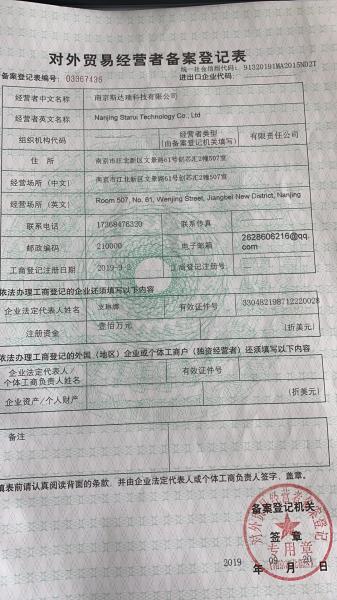 对外贸易经营者备案登记表
统一社会信用代码: 91320191MA2015ND2T
备案登记表编号: 03367436
进出口企业代码:
经营者中文名称 南京斯达瑞科技有限公司
经营者英文名称 Nanjing Starui Technology Co., Ltd
组织机构代码 经营者类型 (由备案登记机关填写) 有限责任公司
住 所 南京市江北新区文景路61号创芯汇2幢507室
经营场所(中文) 南京市江北新区文景路61号创芯汇2幢507室
经营场所(英文) Room 507, No. 61, Wenjing Street, Jiangbei New District, Nanjing
联系电话 17368476320 联系传真
邮政编码 210000 电子邮箱 2628606216@qq.com
工商登记注册日期 2019-9-3 工商登记注册号
依法办理工商登记的企业还须填写以下内容
企业法定代表人姓名 支琳娜 有效证件号 330482198712220028
注册资金 壹佰万元 (折美元)
依法办理工商登记的外国(地区)企业或个体工商户(独资经营者)还须填写以下内容
企业法定代表人/
个体工商负责人姓名 有效证件号
企业资产/个人财产 (折美元)
备注
填表前请认真阅读背面的条款,并由企业法定代表人或个体工商负责人签字、盖章。
备案登记机关
签 章
对外贸易经营者备案登记
专用章
2019 年 09 月 20 日